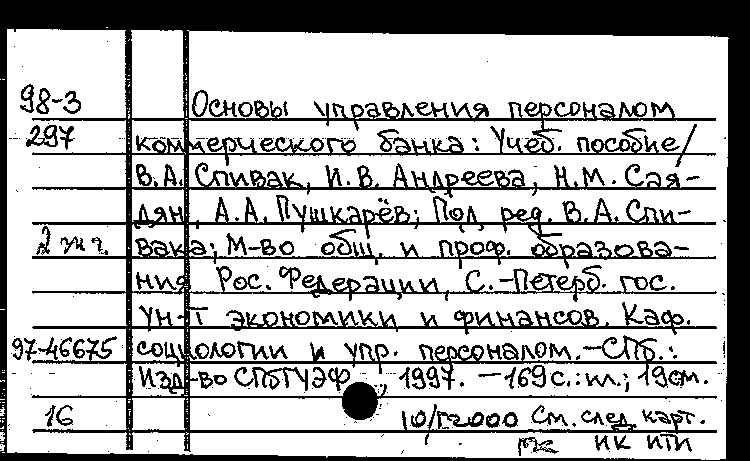 98-3 Основы управления персоналом
297 коммерческого банка: Учеб. пособие/
В.А. Спивак, И.В. Андреева, Н.М. Сая-
дян, А.А. Пушкарёв; Под ред. В.А. Спи-
вака; М-во общ. и проф. образова-
ния Рос. Федерации, С.-Петерб. гос.
Ун-т экономики и финансов. Каф.
97-46675 социологии и упр. персоналом.-СПб.:
Изд-во СПбГУЭФ, 1997. -169с.:ил.; 19см.
16 См. след. карт.
НК ИТИ